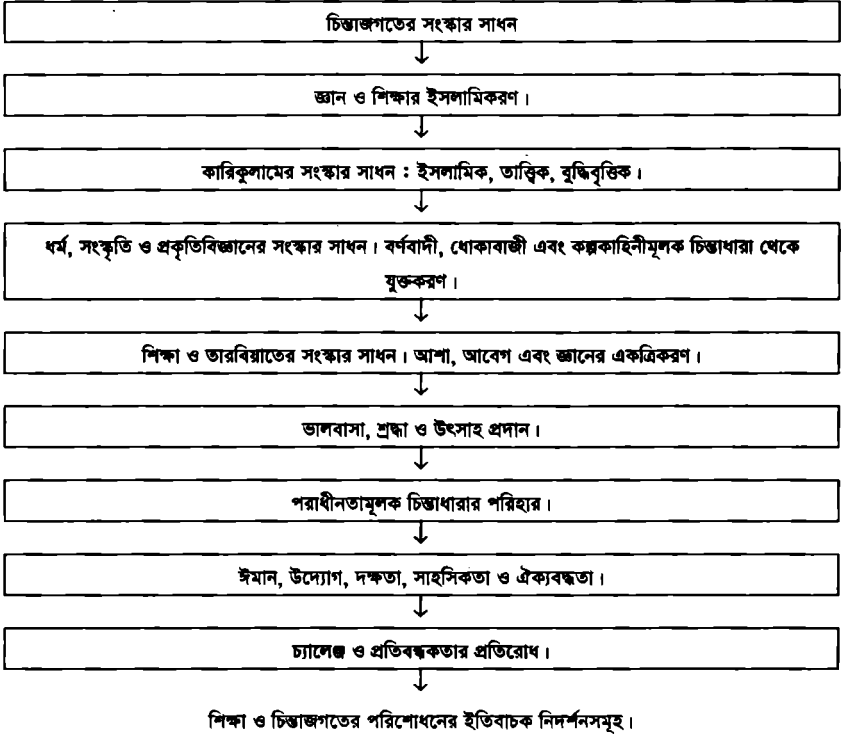 চিন্তাজগতের সংস্কার সাধন
↓
জ্ঞান ও শিক্ষার ইসলামিকরণ।
↓
কারিকুলামের সংস্কার সাধন : ইসলামিক, তাত্ত্বিক, বুদ্ধিবৃত্তিক।
↓
ধর্ম, সংস্কৃতি ও প্রকৃতিবিজ্ঞানের সংস্কার সাধন। বর্ণবাদী, ধোকাবাজী এবং কল্পকাহিনীমূলক চিন্তাধারা থেকে
মুক্তকরণ।
↓
শিক্ষা ও তারবিয়াতের সংস্কার সাধন। আশা, আবেগ এবং জ্ঞানের একত্রিকরণ।
↓
ভালবাসা, শ্রদ্ধা ও উৎসাহ প্রদান।
↓
পরাধীনতামূলক চিন্তাধারার পরিহার।
↓
ঈমান, উদ্যোগ, দক্ষতা, সাহসিকতা ও ঐক্যবদ্ধতা।
↓
চ্যালেঞ্জ ও প্রতিবন্ধকতার প্রতিরোধ।
↓
শিক্ষা ও চিন্তাজগতের পরিশোধনের ইতিবাচক নিদর্শনসমূহ।